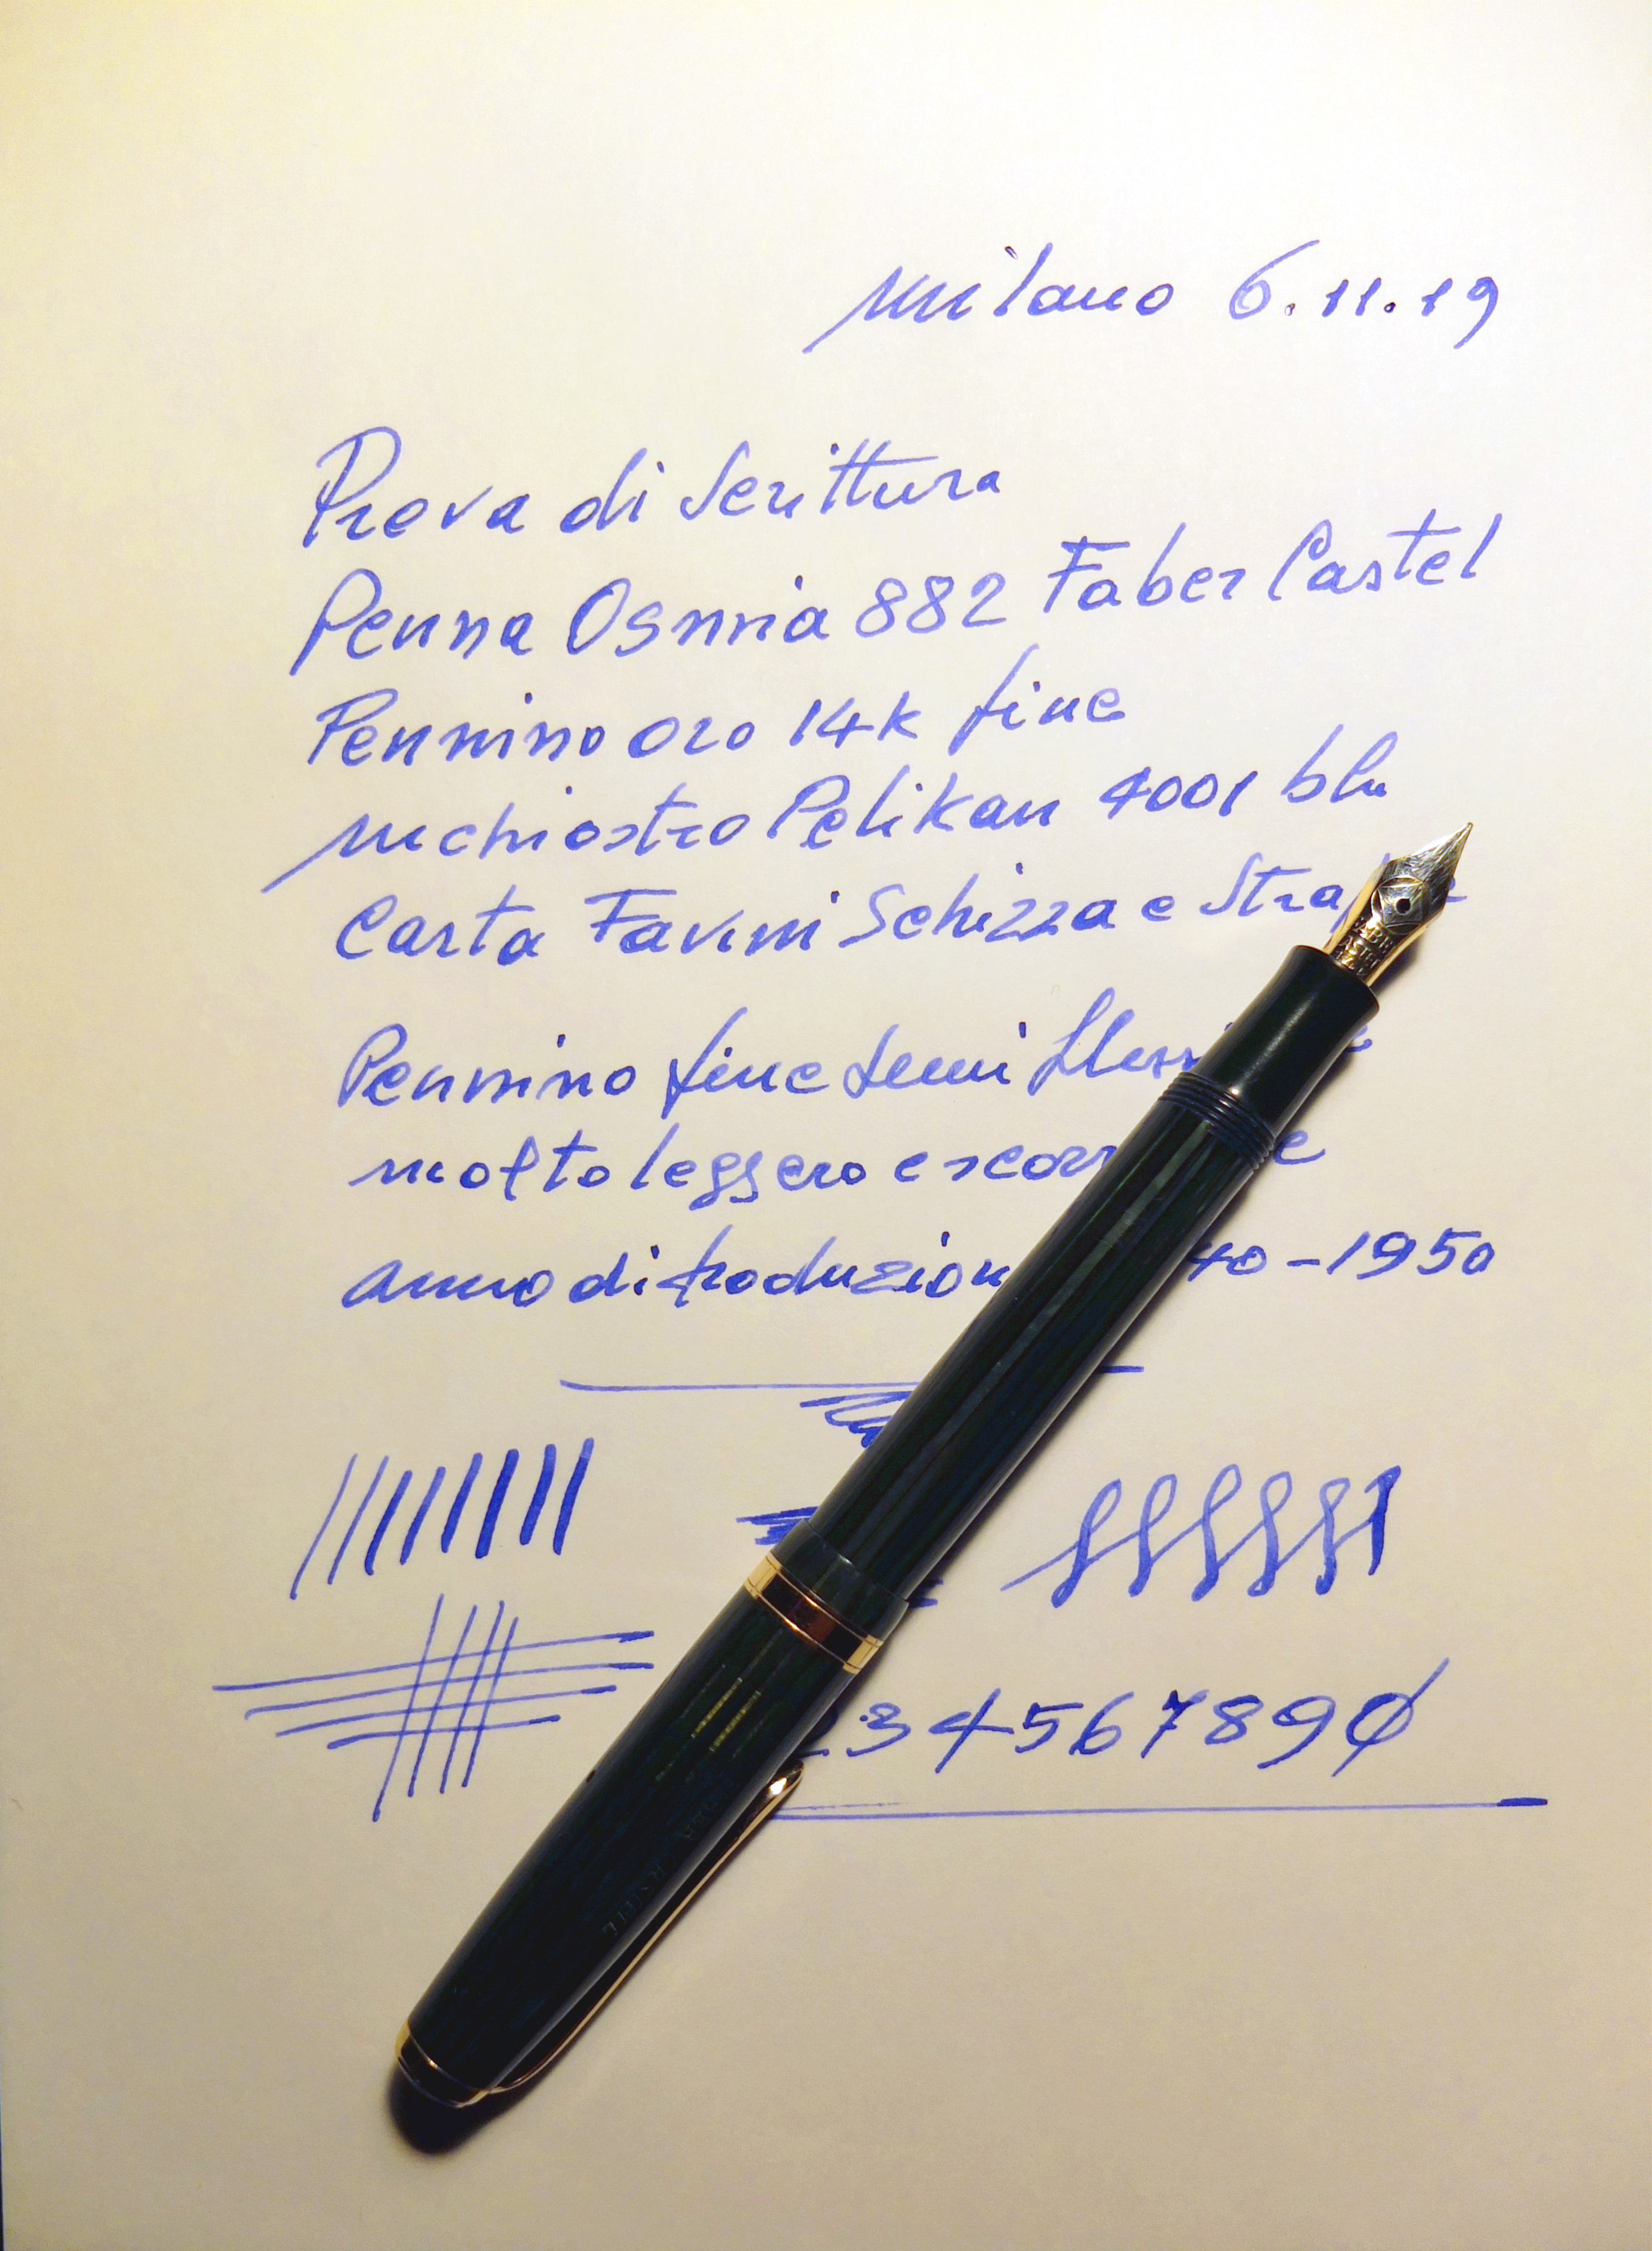 Milano 6.11.19
Prova di Scrittura
Penna Osmia 882 Faber Castel
Pennino oro 14k fine
inchiostro Pelikan 4001 blu
Carta Favini Schizza e
Pennino fine semi
molto leggero e
anno di produzione 40-1950
34567890